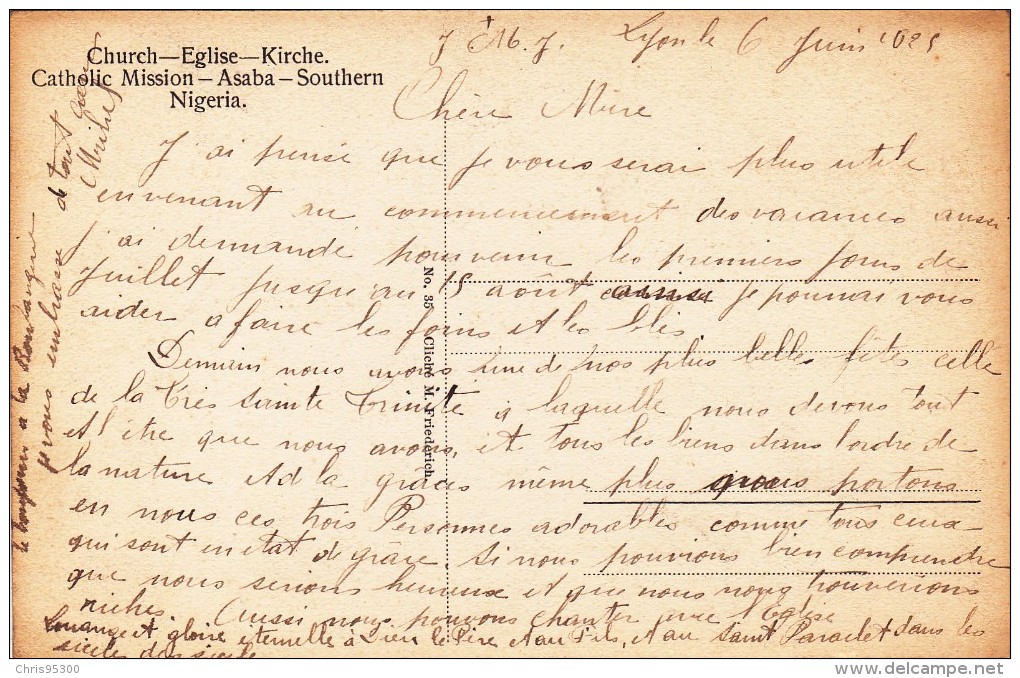 Church—Eglise—Kirche.
Catholic Mission – Asaba – Southern
Nigeria.
J. M. J. Lyon le 6 Juin
Chère Mère
J'ai pensé que je vous serai plus utile
en venant au commencement des vacances aussi
j'ai demandé pour venir les premiers jours de
Juillet jusqu'au 15 août je pourrai vous
aider a faire les foins et les blés
Demain nous avons une de nos plus belles fêtes celle
de la très sainte Trinité a laquelle nous devons tout
et l'être que nous avons, et tous les biens dans l'ordre de
la nature et d la grâce même plus nous portons
en nous ces trois Personnes adorables comme tous ceux
qui sont en état de grâce. Si nous pouvions bien comprendre
que nous serions heureux et que nous nous trouverions
riches. Aussi nous pouvons chanter avec l'Eglise
Louange et gloire eternelle à Dieu le Père et au Fils, et au Saint Paraclet dans les
siècles des siècles
je vous embrasse de tout
No. 35 Cliché M. Friederich.
Chris95300
delcampe.net